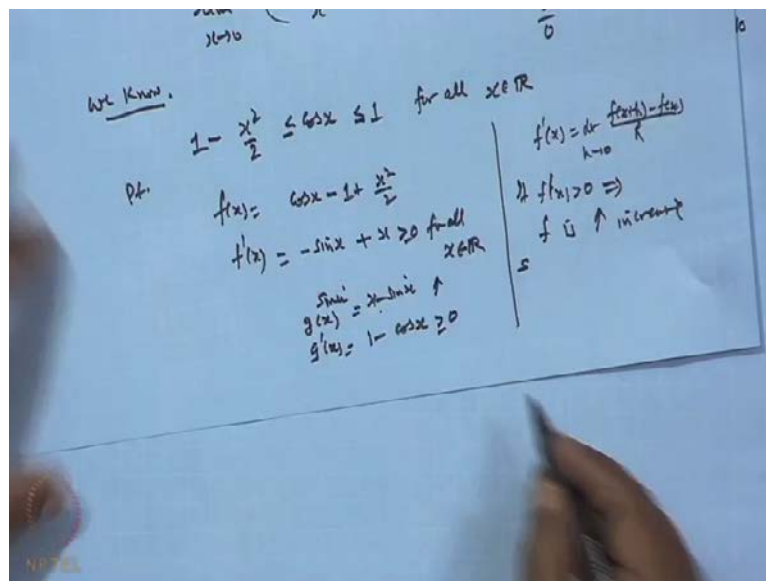 x→0
x
0
10
We know.
1 - x²/2 ≤ cosx ≤ 1 for all x∈ℝ
Pf.
f(x) = cosx - 1 + x²/2
f'(x) = -sinx + x ≥ 0 for all
x∈ℝ
Since
g(x) = x - sinx ↑
g'(x) = 1 - cosx ≥ 0
f'(x) = lt f(x+h) - f(x) / h
h→0
If f'(x) > 0 ⇒
f is ↑ increasing
S
NPTEL